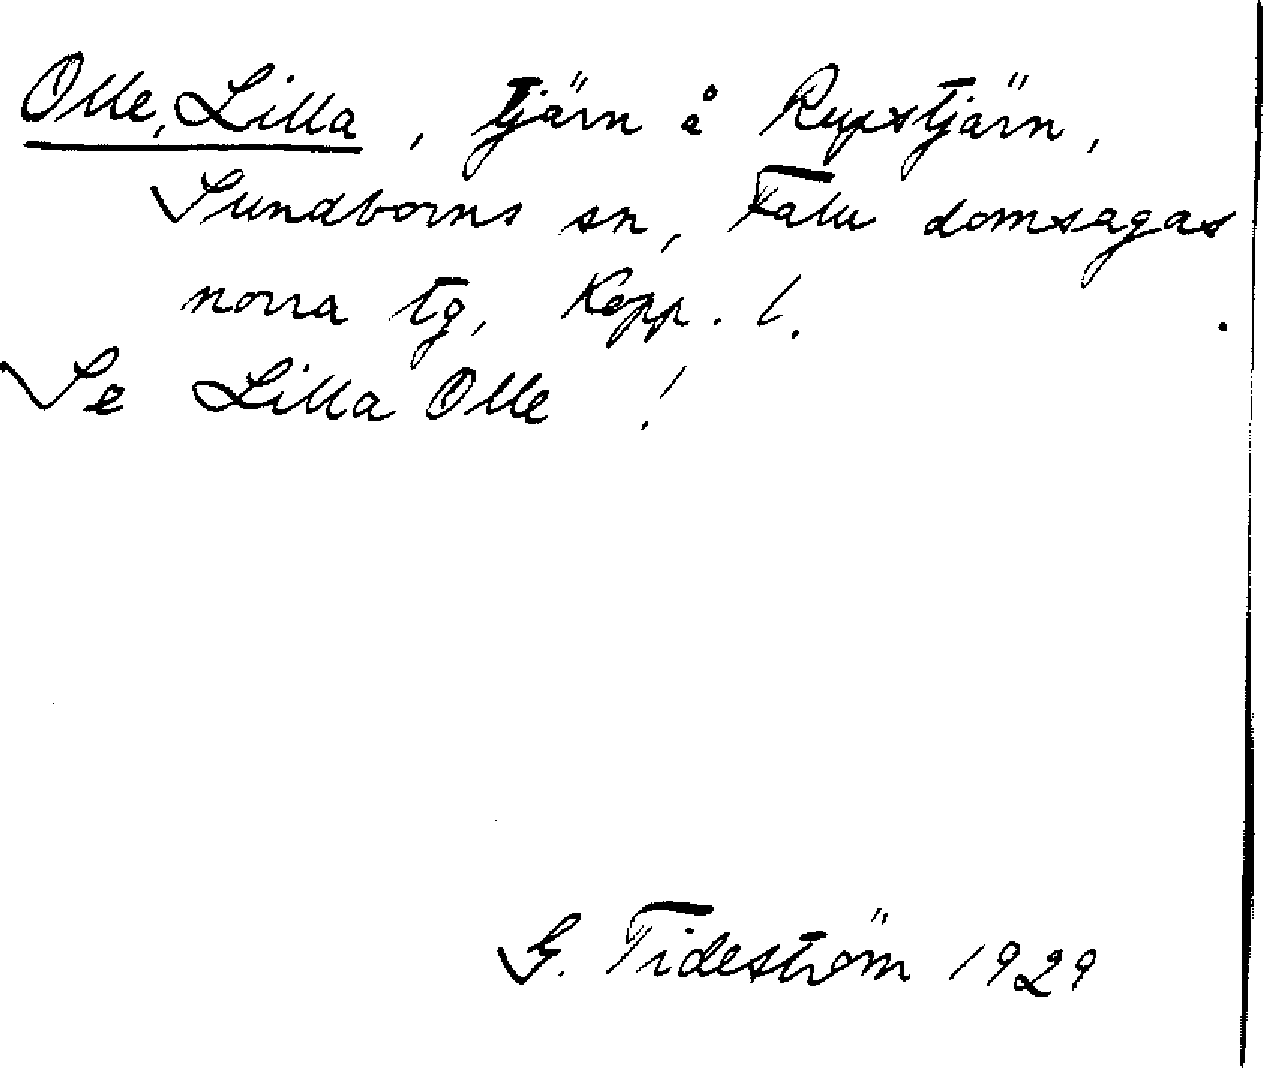 Olle, Lilla, tjärn å Rupstjärn,
Sundborns sn, Falu domsagas
norra tg, Kopp. l.
Se Lilla Olle!
G. Tideström 1929